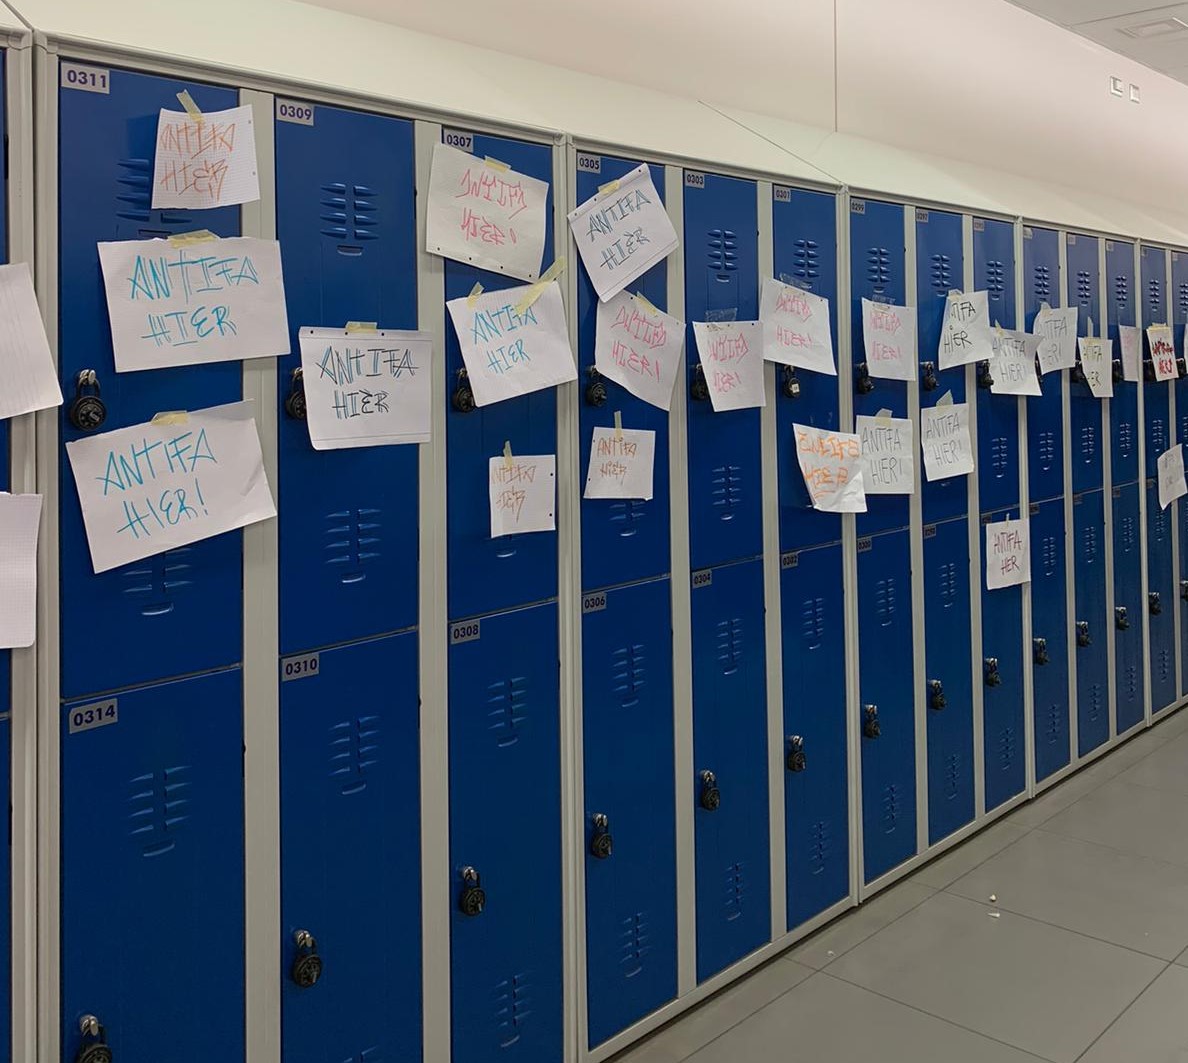 0311
ANTIFA
HIER
ANTIFA
HIER
ANTIFA
HIER!
0314
0309
ANTIFA
HIER
0310
0307
ANTIFA
HIER!
ANTIFA
HIER
ANTIFA
HIER
0308
0305
ANTIFA
HIER
ANTIFA
HIER!
ANTIFA
HIER
0306
0303
ANTIFA
HIER!
0304
0301
ANTIFA
HIER!
HIER
0302
0299
ANTIFA
HIER!
ANTIFA
HIER!
0300
TIFA
HIER!
ANTIFA
HIER!
ANTIFA
HIER!
ANTIFA
HER
ANTIFA
HIER!